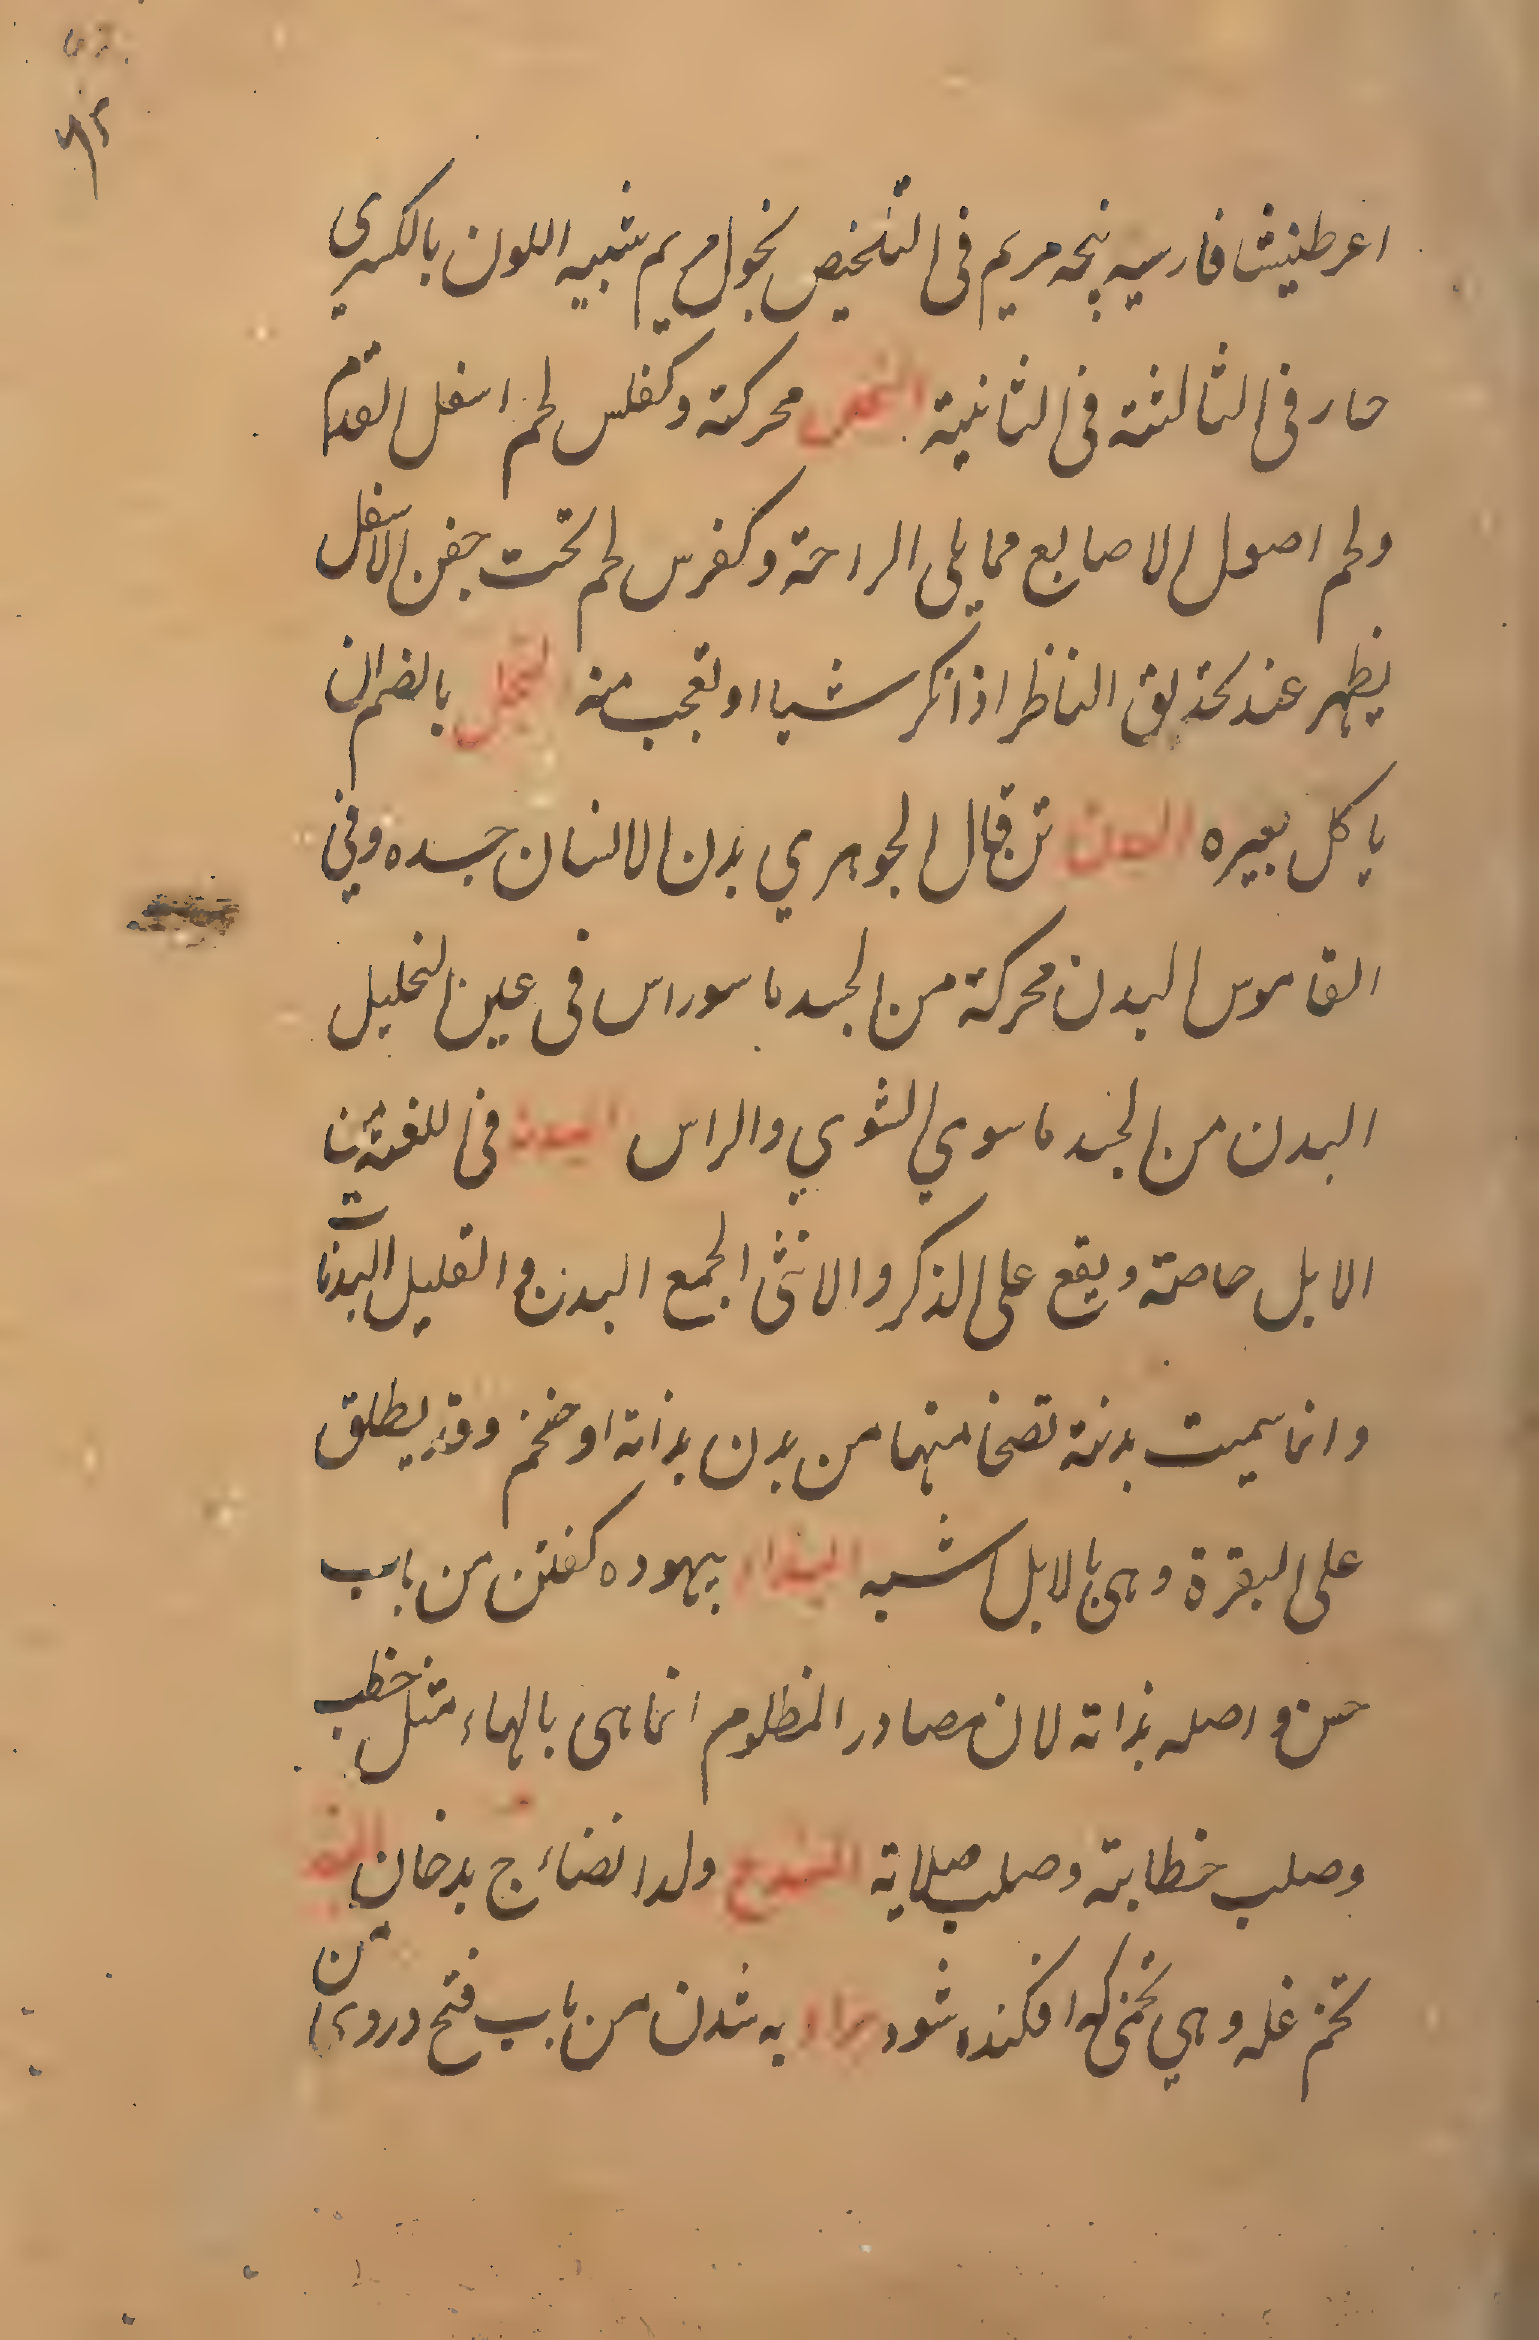 ٦٢
اعرطنيشا فارسيه پنجه مريم فى التلخيص بخول مريم شبيه اللون بالكسيرى
حار فى الثالثة فى الثانية البخص محركة وكفلس لحم اسفل القدم
ولحم اصول الاصابع مما يلى الراحة وكفرس لحم تحت جفن الاسفل
يظهر عند تحذيق الناظر اذا انكر شيا او تعجب منه البخل بالضم ان
ياكل بعيره البدن تن قال الجوهري بدن الانسان جسده وفى
القاموس البدن محركة من الجسد ما سوراس فى عين الخليل
البدن من الجسد ما سوي الشوي والراس البدنة فى اللغة من
الابل خاصة ويقع على الذكر والانثى الجمع البدن والقليل البدنات
وانما سميت بدنة تضخا منها من بدن بذانة او ضخم وقد يطلق
على البقرة وهى بالابل اشبه البذاء بيهوده كفتن من باب
حسن و اصله بذاته لان مصادر المظلوم انما هى بالهاء مثل خطب
وصلب خطابة وصلب صلابة البذج ولد الضائن ج بدخان البذر
تخم غله وهي تخمى كه افكنده شود براء به شدن من باب فتح دروى من